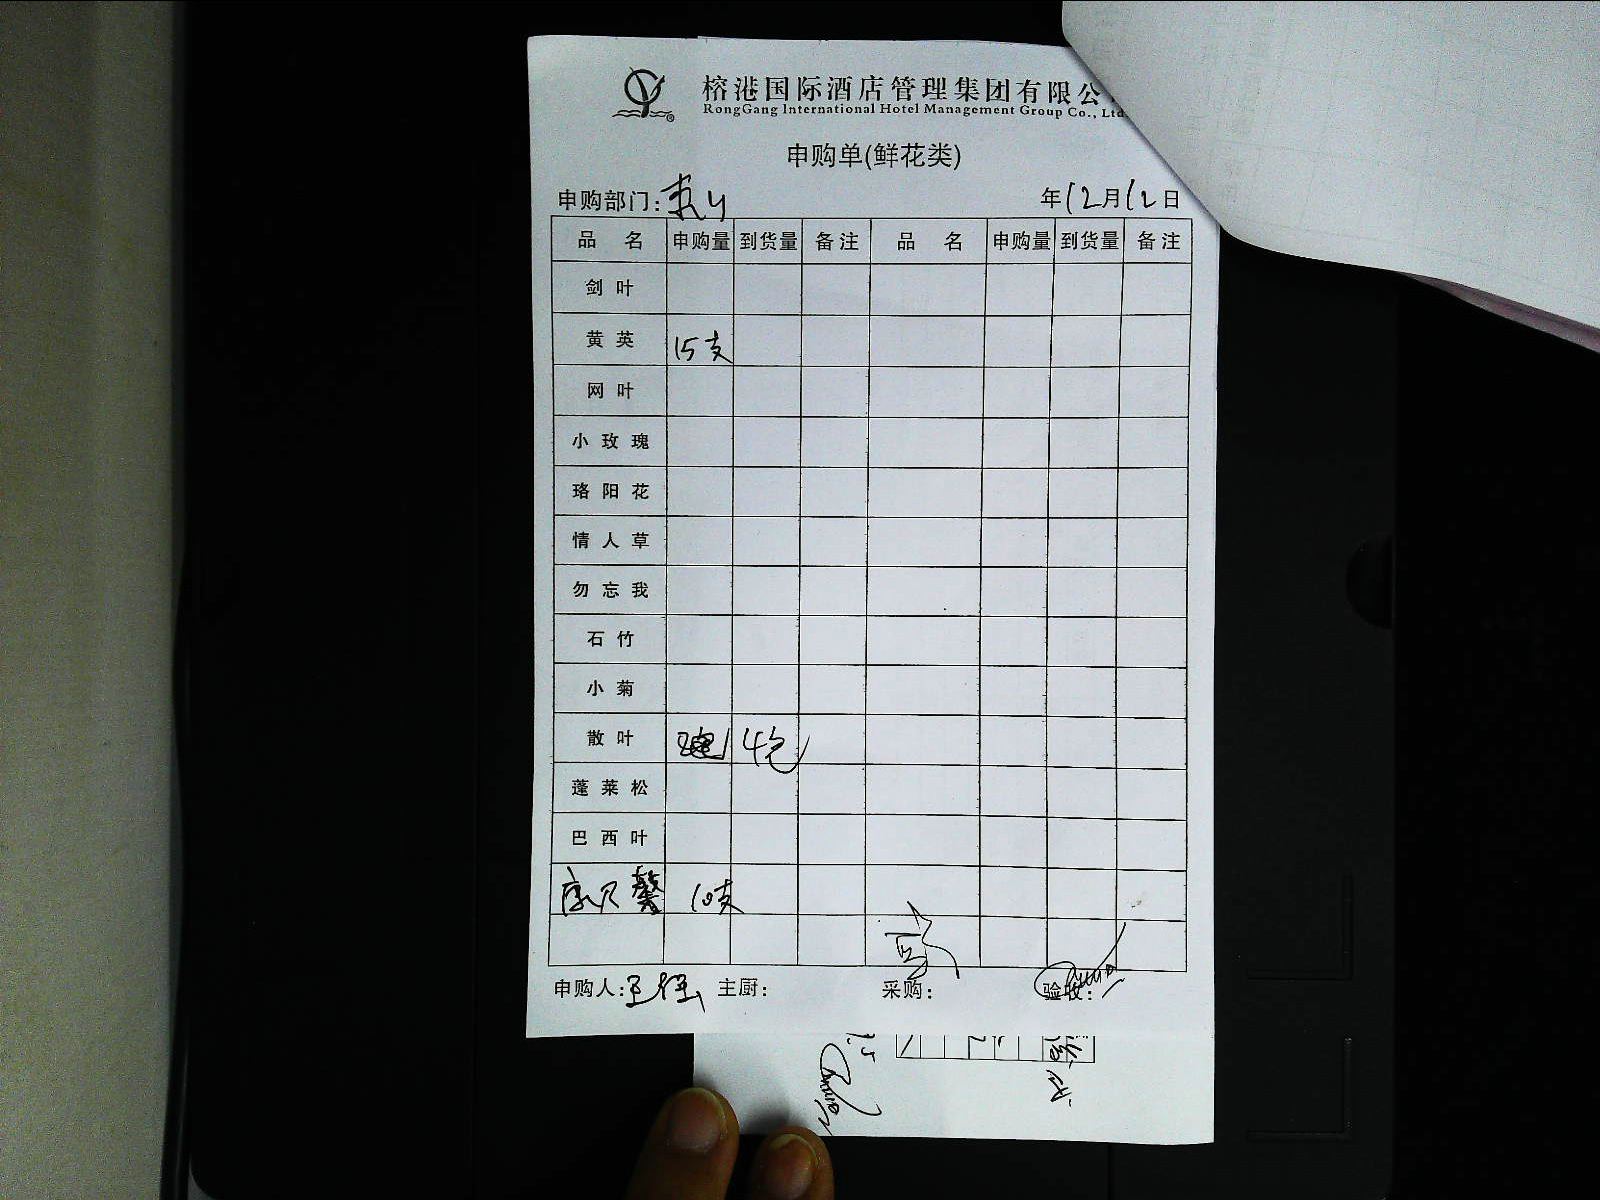 榕港国际酒店管理集团有限公
RongGang International Hotel Management Group Co., Ltd
申购单(鲜花类)
申购部门: 年12月12日
品名 申购量 到货量 备注 品名 申购量 到货量 备注
剑叶
黄英 15支
网叶
小玫瑰
珞阳花
情人草
勿忘我
石竹
小菊
散叶 4包
蓬莱松
巴西叶
康乃馨 10支
申购人: 主厨: 采购: 验收: